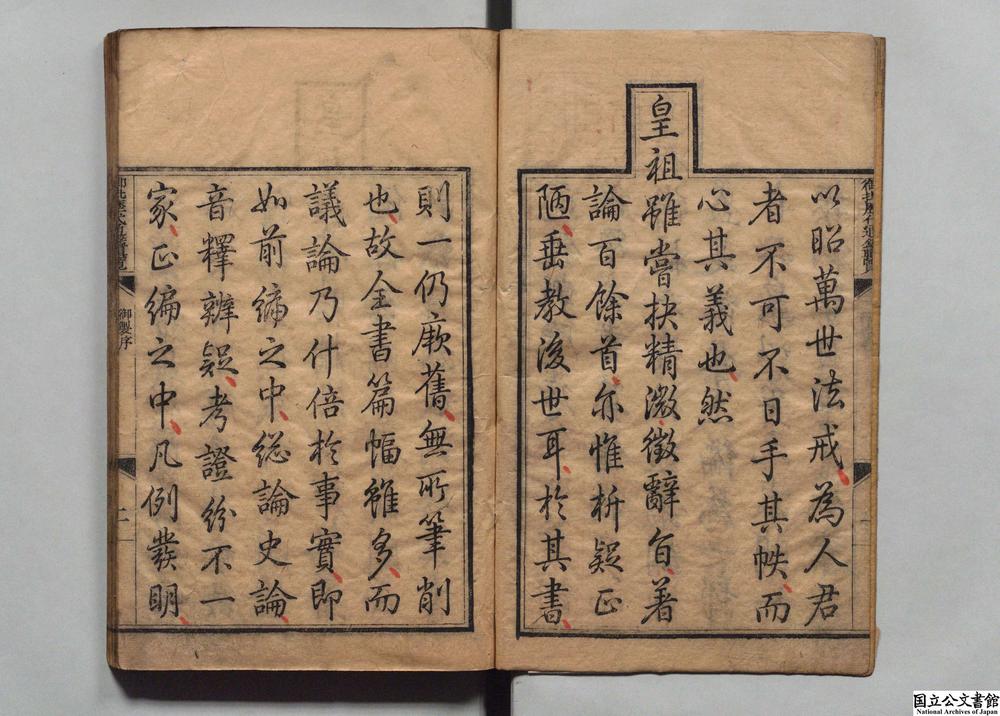 以昭萬世法戒為人君
者不可不日手其帙而
心其義也然
皇祖雖嘗抉精微徵辭旨著
論百餘首亦惟析疑正
陋垂教後世耳於其書
則一仍厥舊無所筆削
也故全書篇幅雖多而
議論乃什倍於事實即
如前編之中總論史論
音釋辨疑考證紛不一
家正編之中凡例發明
御批歷代通鑑輯覽
御製序
二
国立公文書館
National Archives of Japan